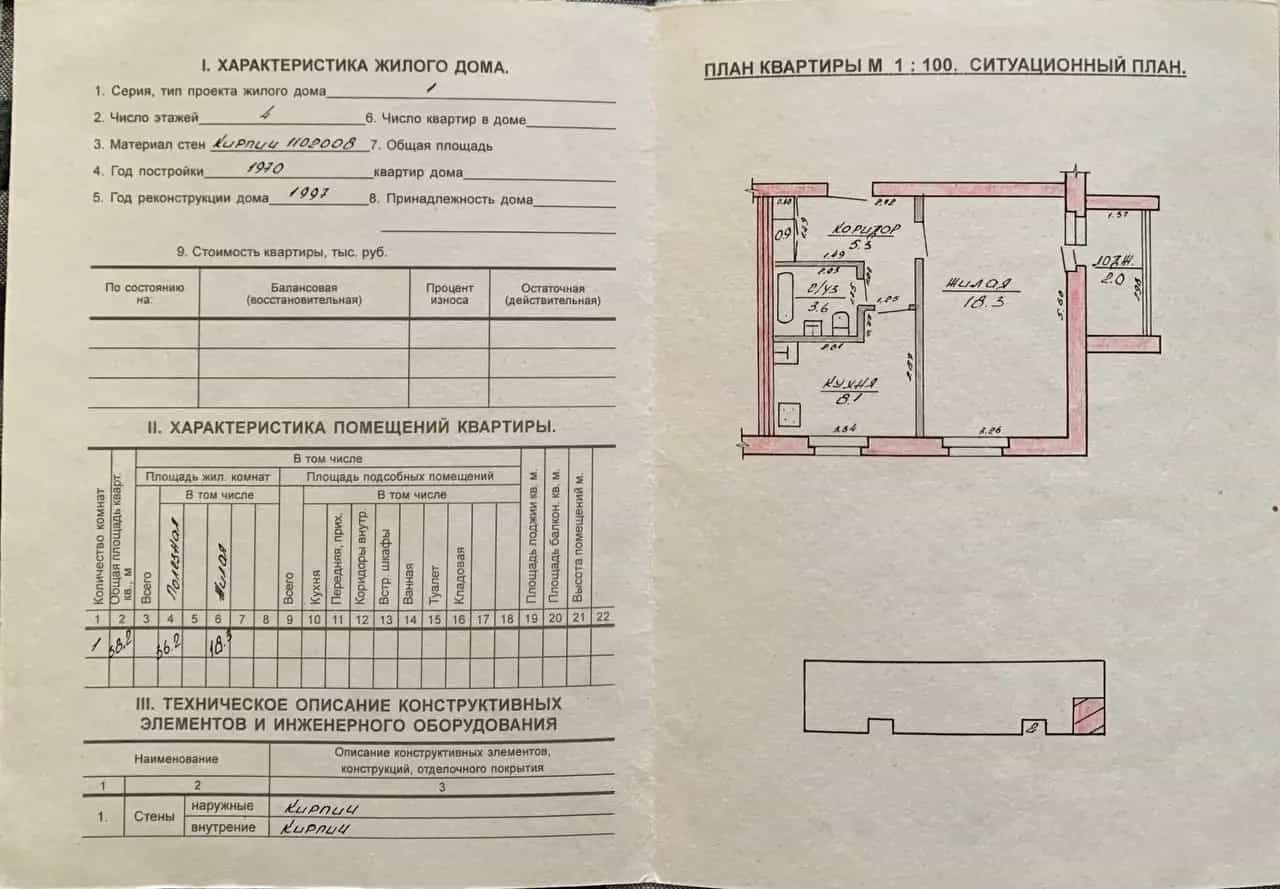 I. ХАРАКТЕРИСТИКА ЖИЛОГО ДОМА.
1. Серия, тип проекта жилого дома 1
2. Число этажей 4 6. Число квартир в доме
3. Материал стен Кирпич 7. Общая площадь
4. Год постройки 1970 квартир дома
5. Год реконструкции дома 1997 8. Принадлежность дома
9. Стоимость квартиры, тыс. руб.
По состоянию на: Балансовая (восстановительная) Процент износа Остаточная (действительная)
II. ХАРАКТЕРИСТИКА ПОМЕЩЕНИЙ КВАРТИРЫ.
В том числе
Площадь жил. комнат Площадь подсобных помещений
В том числе В том числе
Количество комнат
Общая площадь кварт. кв., м
Всего
Полезная
Жилая
Всего
Кухня
Передняя, прих.
Коридоры внутр.
Встр. шкафы
Ванная
Туалет
Кладовая
Площадь лоджии кв. м.
Площадь балкон. кв. м.
Высота помещений м.
1 2 3 4 5 6 7 8 9 10 11 12 13 14 15 16 17 18 19 20 21 22
1 38.2 36.2 18.3
III. ТЕХНИЧЕСКОЕ ОПИСАНИЕ КОНСТРУКТИВНЫХ
ЭЛЕМЕНТОВ И ИНЖЕНЕРНОГО ОБОРУДОВАНИЯ
Наименование Описание конструктивных элементов,
конструкций, отделочного покрытия
1 2 3
1. Стены наружные Кирпич
внутрение Кирпич
ПЛАН КВАРТИРЫ М 1 : 100. СИТУАЦИОННЫЙ ПЛАН.
0.9
КОРИДОР
5.3
1.49
С/УЗ
3.6
1.25
КУХНЯ
8.1
ЖИЛАЯ
18.3
5.60
3.26
1.37
ЛОДЖ.
2.0
2